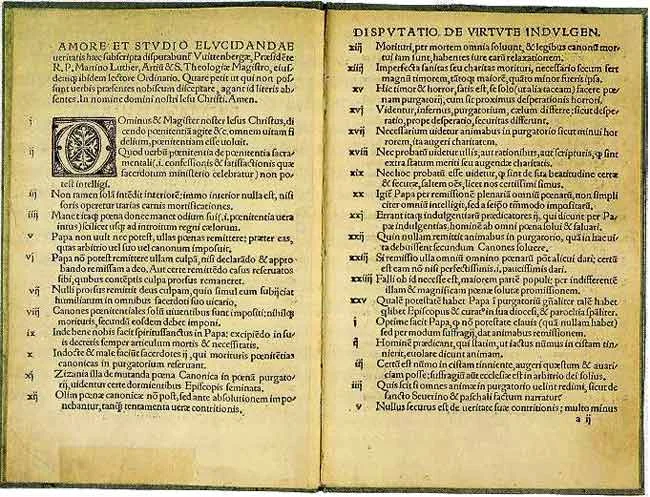 AMORE ET STVDIO ELVCIDANDAE
ueritatis hæc subscripta disputabunt̃ Vuittenbergæ, Præsidẽte
R. P. Martino Luther, Artiũ & S. Theologiæ Magistro, eius-
demq; ibidem lectore Ordinario. Quare petit ut qui non pos-
sunt uerbis præsentes nobiscum disceptare, agant id literis ab-
sentes. In nomine domini nostri Iesu Christi. Amen.
i DOminus & Magister noster Iesus Christus, di-
cendo pœnitentiã agite &c, omnem uitam fi
delium, pœnitentiam esse uoluit.
ij Quod uerbũ pœnitentia de pœnitentia sacra-
mentali (.i. confessionis & satisfactionis quæ
sacerdotum ministerio celebratur) non po-
test intelligi.
iij Non tamen solã intẽdit interiorẽ: immo interior nulla est, nisi
foris operetur uarias carnis mortificationes.
iiij Manet itaq; pœna donec manet odium sui (.i. pœnitentia uera
intus) scilicet usq; ad introitum regni cœlorum.
v Papa non uult nec potest, ullas pœnas remittere: præter eas,
quas arbitrio uel suo uel canonum imposuit.
vj Papa nõ potest remittere ullam culpã, nisi declarãdo & appro
bando remissam a deo. Aut certe remittẽdo casus reseruatos
sibi, quibus contẽptis culpa prorsus remaneret.
vij Nulli prorsus remittit deus culpam, quin simul eum subijciat
humiliatum in omnibus sacerdoti suo uicario.
viij Canones pœnitentiales solũ uiuentibus sunt impositi: nihilq;
morituris, secundũ eosdem debet imponi.
ix Inde bene nobis facit spiritussanctus in Papa: excipiẽdo in su-
is decretis semper articulum mortis & necessitatis.
x Indocte & male faciũt sacerdotes ij, qui morituris pœnitẽtias
canonicas in purgatorium reseruant.
xj Zizania illa de mutanda pœna Canonica in pœnã purgato-
rij, uidentur certe dormientibus Episcopis seminata.
xij Olim pœnæ canonicæ nõ post, sed ante absolutionem impo-
nebantur, tanq̃ tentamenta ueræ contritionis.
DISPVTATIO DE VIRTVTE INDVLGEN.
xiij Morituri, per mortem omnia soluunt, & legibus canonũ mor-
tui iam sunt, habentes iure earũ relaxationem.
xiiij Imperfecta sanitas seu charitas morituri, necessario secum fert
magnũ timorem, tãtoq; maiorẽ, quãto minor fuerit ipsa.
xv Hic timor & horror, satis est, se solo (ut alia taceam) facere pœ-
nam purgatorij, cum sit proximus desperationis horrori.
xvj Videntur, infernus, purgatorium, cælum differre: sicut despe-
ratio, prope desperatio, securitas differunt.
xvij Necessarium uidetur animabus in purgatorio sicut minui hor-
rorem, ita augeri charitatem.
xviij Nec probatũ uidetur ullis, aut rationibus, aut scripturis, q̃ sint
extra statum meriti seu augendæ charitatis.
xix Nec hoc probatũ esse uidetur, q̃ sint de sua beatitudine certæ
& securæ, saltem oẽs, licet nos certissimi simus.
xx Igit̃ Papa per remissionẽ plenariã omniũ pœnarũ, non simpli
citer omniũ intelligit, sed a seipso tm̃modo impositarũ.
xxj Errant itaq; indulgentiarũ prædicatores ij, qui dicunt per Pa-
pæ indulgentias, hominẽ ab omni pœna solui & saluari.
xxij Quin nullam remittit animabus in purgatorio, quã in hac ui-
ta debuissent secundum Canones soluere.
xxiij Si remissio ulla omniũ omnino pœnarũ põt alicui dari; certũ
est eam nõ nisi perfectissimis .i. paucissimis dari.
xxiiij Falli ob id necesse est, maiorem partẽ populi: per indifferentẽ
illam & magnificam pœnæ solutæ promissionem.
xxv Qualẽ potestatẽ habet Papa ĩ purgatoriũ gñaliter talẽ habet
q̃libet Episcopus & curatus in sua diœcesi, & parochia sp̃aliter.
j Optime facit Papa, q̃ nõ potestate clauis (quã nullam habet)
sed per modum suffragij, dat animabus remissionem.
ij Hominẽ prædicant, qui statim, ut iactus nũmus in cistam tin-
nierit, euolare dicunt animam.
iij Certũ est nũmo in cistam tinniente, augeri quæstum & aua-
riciam posse: suffragiũ aũt ecclesiæ est in arbitrio dei solius.
iiij Quis scit si omnes animæ in purgatorio uelint redimi, sicut de
sancto Seuerino & paschali factum narratur
v Nullus securus est de ueritate suæ contritionis; multo minus
a ij